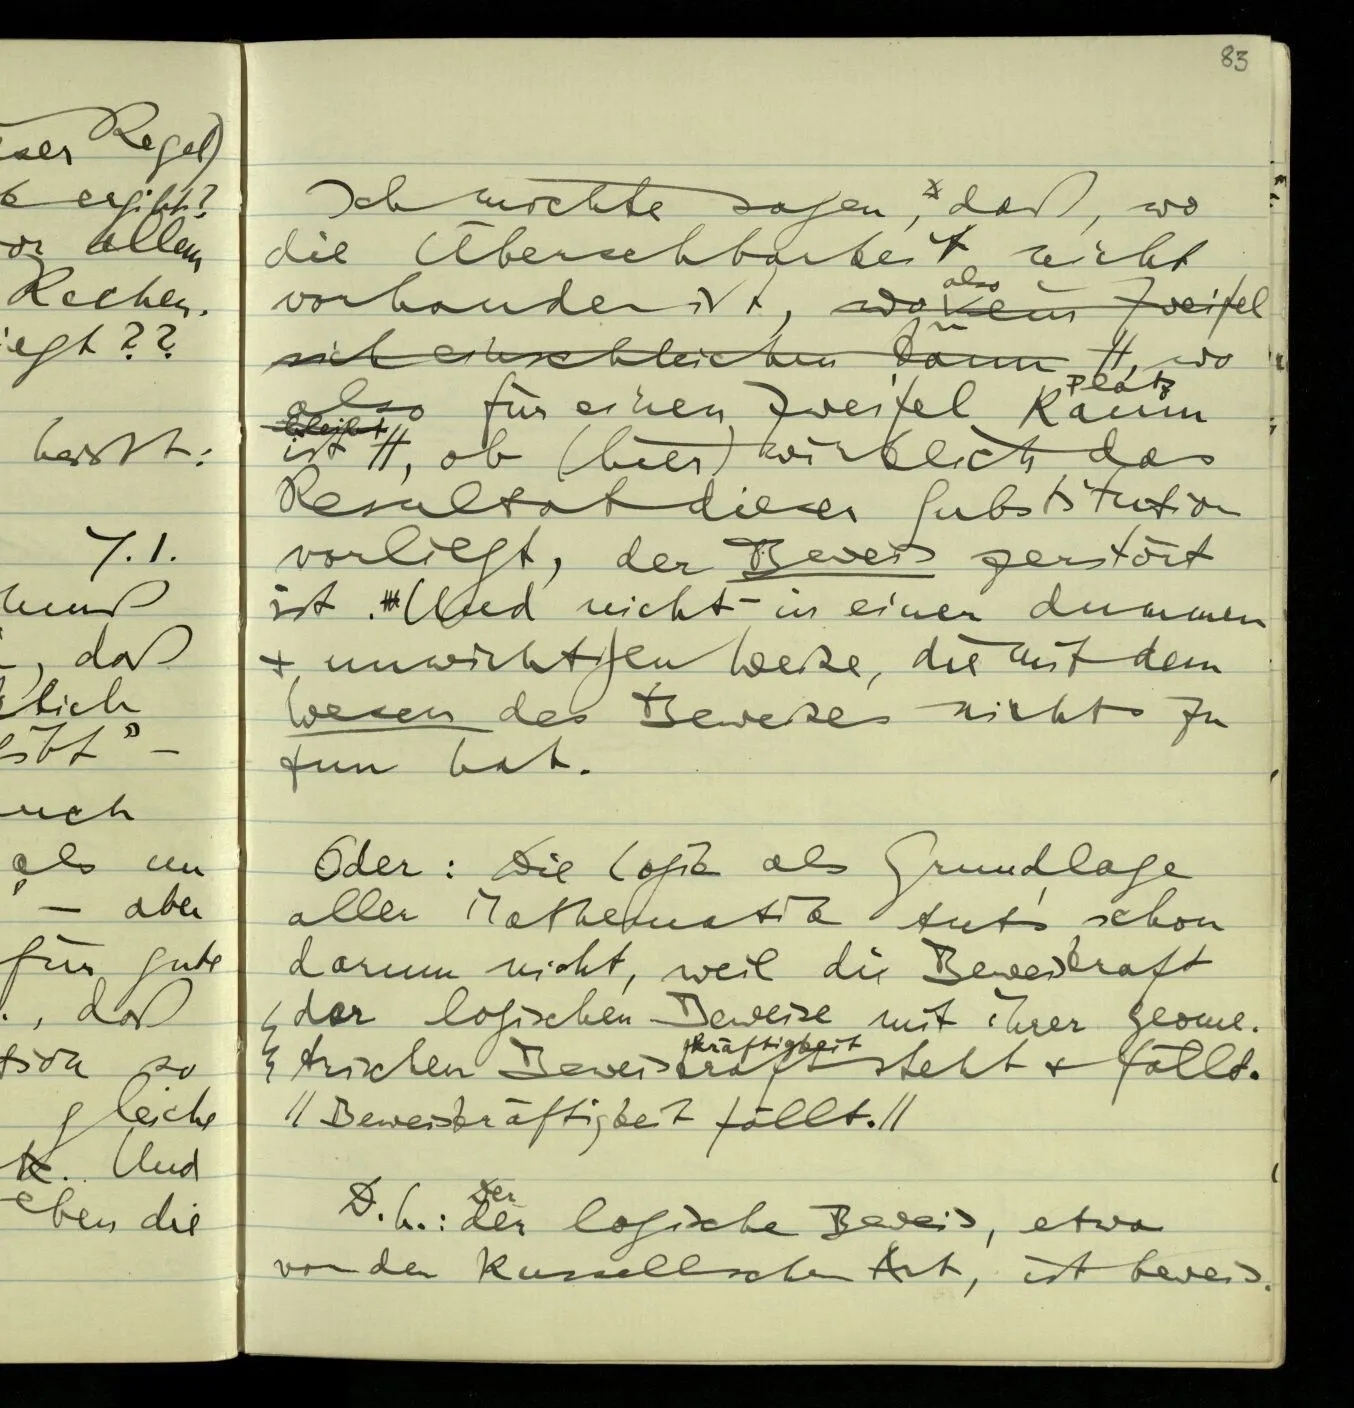 83
eser Regel)
ergibt?
vor allem
Rechen.
iegt??
heißt:
7.1.
muß
, daß
tlich
gibt" –
auch
als un
" – aber
für gute
., daß
tion so
gleiche
Und
eben die
Ich möchte sagen, daß, wo
die Übersehbarkeit nicht
vorhanden ist, wo also ein Zweifel
sich einschleichen kann //, wo
also für einen Zweifel Raum Platz
bleibt ist //, ob (hier) wirklich das
Resultat dieser Substitution
vorliegt, der Beweis zerstört
ist. Und nicht in einer dummen
+ unwichtigen Weise, die mit dem
Wesen des Beweises nichts zu
tun hat.
Oder: Die Logik als Grundlage
aller Mathematik tut's schon
darum nicht, weil die Beweiskraft
der logischen Beweise mit ihrer geome-
trischen Beweiskraft kräftigkeit steht + fällt.
// Beweiskräftigkeit fällt.//
D.h.: Der der logische Beweis, etwa
von der Russellschen Art, ist beweis-